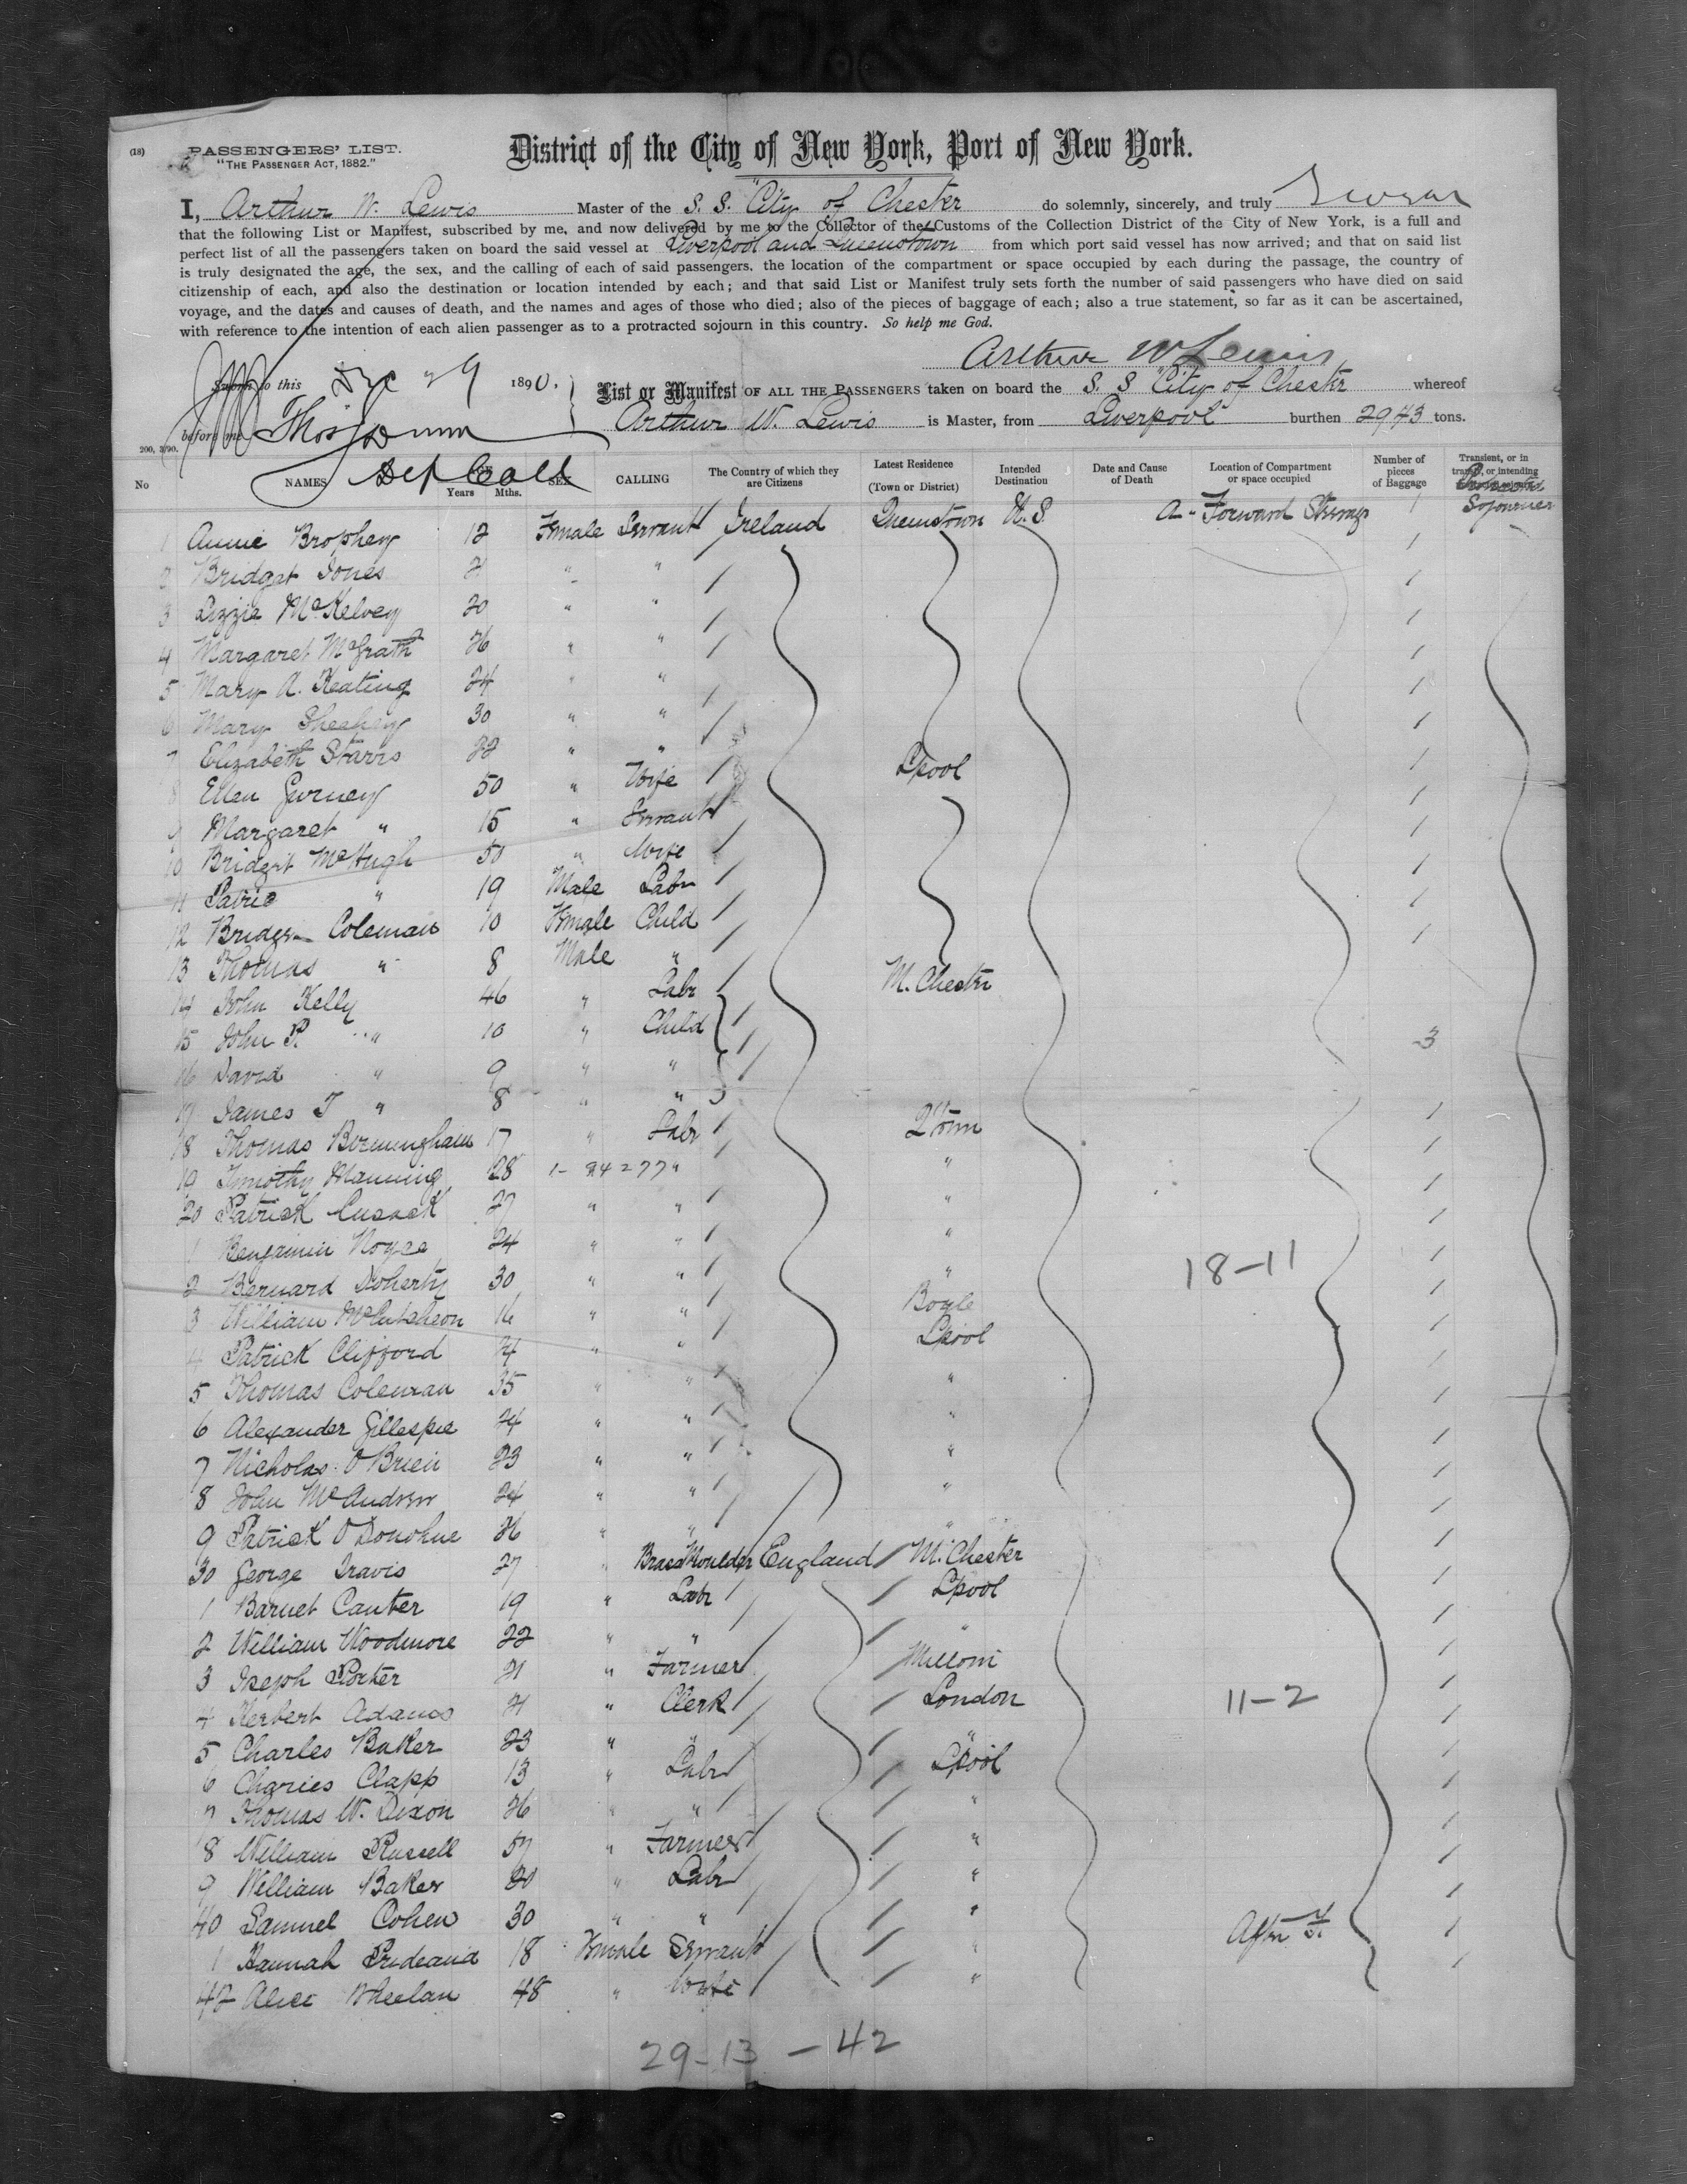 (18)
PASSENGERS' LIST.
"THE PASSENGER ACT, 1882."
District of the City of New York, Port of New York.
I, Arthur W. Lewis Master of the S. S. "City of Chester do solemnly, sincerely, and truly swear
that the following List or Manifest, subscribed by me, and now delivered by me to the Collector of the Customs of the Collection District of the City of New York, is a full and
perfect list of all the passengers taken on board the said vessel at Liverpool and Queenstown from which port said vessel has now arrived; and that on said list
is truly designated the age, the sex, and the calling of each of said passengers, the location of the compartment or space occupied by each during the passage, the country of
citizenship of each, and also the destination or location intended by each; and that said List or Manifest truly sets forth the number of said passengers who have died on said
voyage, and the dates and causes of death, and the names and ages of those who died; also of the pieces of baggage of each; also a true statement, so far as it can be ascertained,
with reference to the intention of each alien passenger as to a protracted sojourn in this country. So help me God.
Arthur W Lewis
Sworn to this Dec 29 1890,
before me Thos Dunn
Dep Coll
List or Manifest OF ALL THE PASSENGERS taken on board the S. S "City of Chester whereof
Arthur W. Lewis is Master, from Liverpool burthen 2943 tons.
200, 3/90.
No NAMES Years Mths. SEX CALLING The Country of which they are Citizens Latest Residence (Town or District) Intended Destination Date and Cause of Death Location of Compartment or space occupied Number of pieces of Baggage Transient, or in transit, or intending
1 Annie Brophey 12 Female Servant Ireland Queenstown U.S. a - Forward Steerage 1 Sojourner
2 Bridget Jones 21 " " 1
3 Lizzie McKelvey 20 " " 1
4 Margaret McGrath 26 " " 1
5 Mary A. Keating 24 " " 1
6 Mary Sheehey 30 " " 1
7 Elizabeth Starrs 22 " " 1
8 Ellen Gurney 50 " Wife Lpool 1
9 Margaret " 15 " Servant 1
10 Bridgit McHugh 50 " Wife 1
11 Patric " 19 Male Labr 1
12 Bridget Coleman 10 Female Child 1
13 Thomas " 8 Male " 1
14 John Kelly 46 " Labr M. Chester
15 John P. " 10 " Child 3
16 David " 9 " "
17 James T " 8 " "
18 Thomas Birmingham 17 " Labr 1
19 Timothy Manning 28 1- 842774 " 1
20 Patrick Cusack 27 " " " 1
1 Benjamin Noyce 24 " " " 1
2 Bernard Doherty 30 " " " 18-11 1
3 William McCutcheon 16 " " Boyle 1
4 Patrick Clifford 24 " " Lpool 1
5 Thomas Coleman 35 " " " 1
6 Alexander Gillespie 24 " " " 1
7 Nicholas O'Brien 23 " " " 1
8 John McAndrew 24 " " " 1
9 Patrick O'Donohue 26 " " " 1
30 George Travis 27 " Brass Moulder England M. Chester 1
1 Barnet Canter 19 " Labr Lpool 1
2 William Woodmore 22 " " " 1
3 Joseph Porter 21 " Farmer 1
4 Herbert Adams 21 " Clerk London 11-2 1
5 Charles Baker 23 " " " 1
6 Charles Clapp 13 " Labr Lpool 1
7 Thomas W. Dixon 26 " " " 1
8 William Russell 57 " Farmer " 1
9 William Baker 20 " Labr " 1
40 Samuel Cohen 30 " " " 1
1 Hannah 18 Female Servant " After 1
42 Alice Wheelan 48 " Wife " 1
29-13 - 42